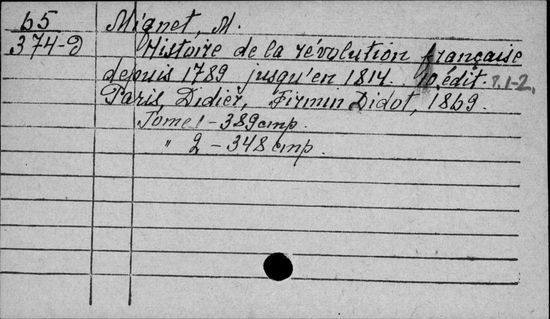 65 Mignet, M.
374-D Histoire de la révolution française
depuis 1789 jusqu'en 1814. 10 édit. T.1-2.
Paris, Didier, Firmin Didot, 1869.
Tome 1 - 389 стр.
" 2 - 348 стр.